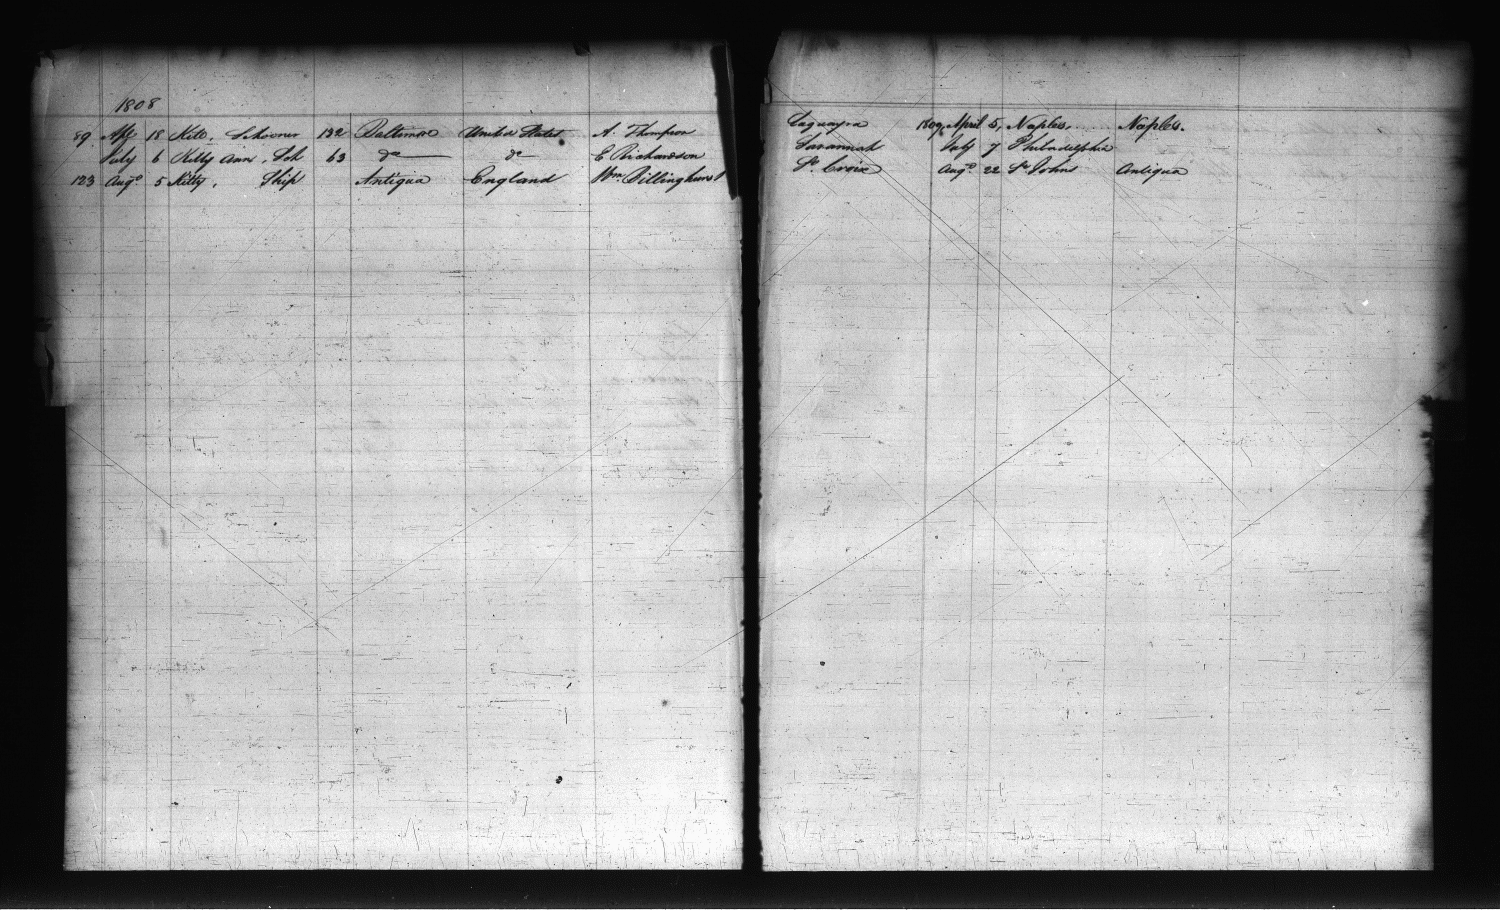 1808
89 18 Kite, Schooner 132 Baltimore United States A. Thompson Laguayra 1809, April 5, Naples, Naples.
July 6 Kitty Ann, Sch 63 do do E Richardson Savannah July 7 Philadelphia
123 Augo 5 Kitty, Ship Antigua England Wm. Billinghurst St. Croix Augo 22 St. Johns Antigua